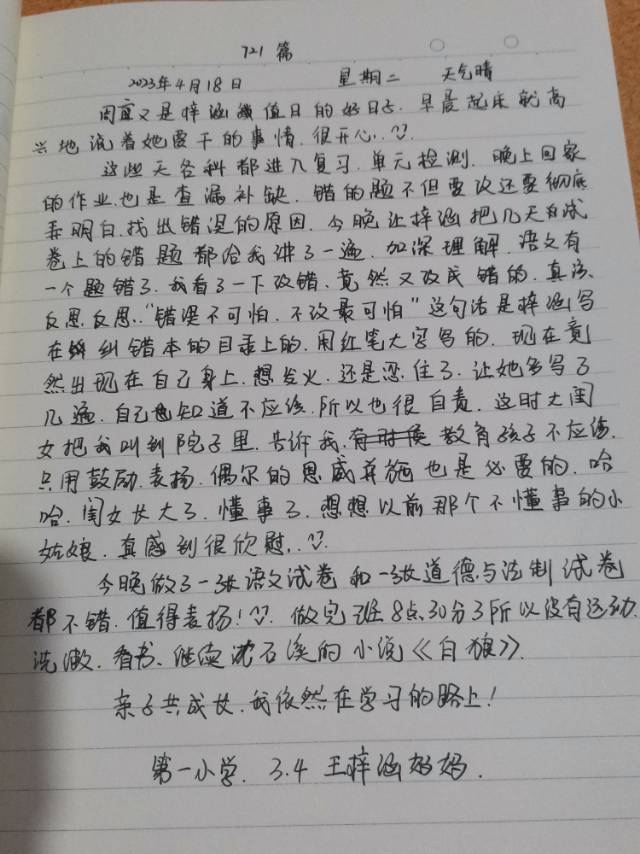 721 篇
2023年4月18日 星期二 天气晴
周二又是梓涵值日的好日子.早晨起床就高
兴地说着她要干的事情.很开心..
这些天各科都进入复习.单元检测.晚上回家
的作业.也是查漏补缺.错的题不但要改还要彻底
弄明白.找出错误的原因.今晚让梓涵把几天自试
卷上的错题都给我讲了一遍.加深理解.语文有
一个题错了.我看了一下改错.竟然又改成错的.真该
反思反思.."错误不可怕.不改最可怕"这句话是梓涵写
在纠错本的目录上的.用红笔大字写的.现在竟
然出现在自己身上.想发火.还是忍住了.让她多写了
几遍.自己也知道不应该.所以也很自责.这时大闺
女把我叫到院子里.告诉我.教育孩子不应该
只用鼓励.表扬.偶尔的恩威并施也是必要的.哈
哈.闺女长大了.懂事了.想想以前那个不懂事的小
姑娘.真感到很欣慰..
今晚做了一张语文试卷和一张道德与法制试卷
都不错.值得表扬!做完班8点30分了所以没有运动.
洗漱.看书.继续沈石溪的小说《白狼》.
亲子共成长.我依然在学习的路上!
第一小学. 3.4 王梓涵妈妈.